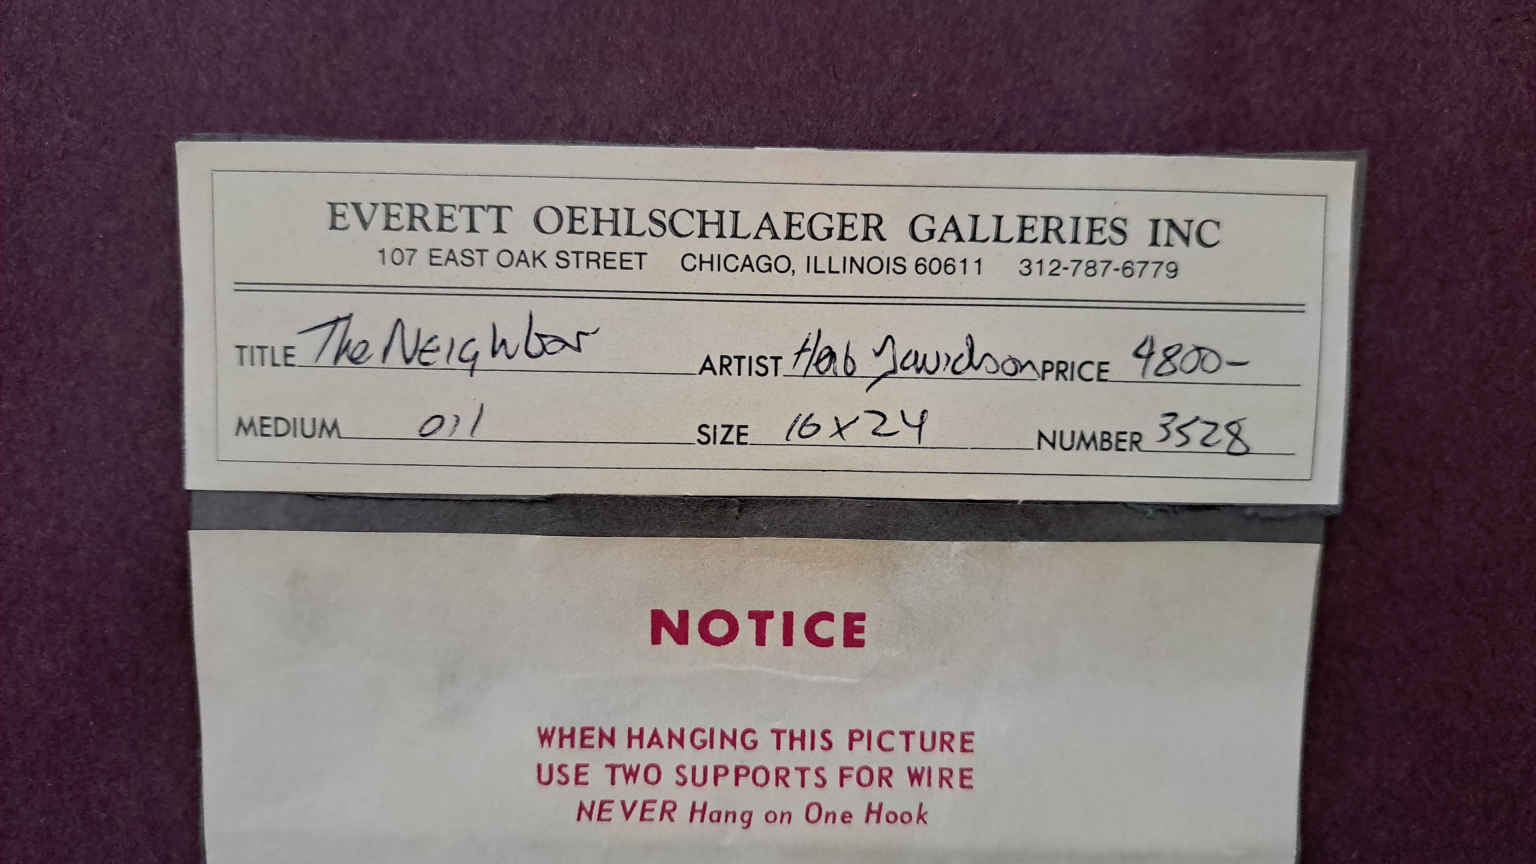 EVERETT OEHLSCHLAEGER GALLERIES INC
107 EAST OAK STREET CHICAGO, ILLINOIS 60611 312-787-6779
TITLE The Neighbor ARTIST Herb Davidson PRICE 4800-
MEDIUM oil SIZE 16 x 24 NUMBER 3528
NOTICE
WHEN HANGING THIS PICTURE
USE TWO SUPPORTS FOR WIRE
NEVER Hang on One Hook